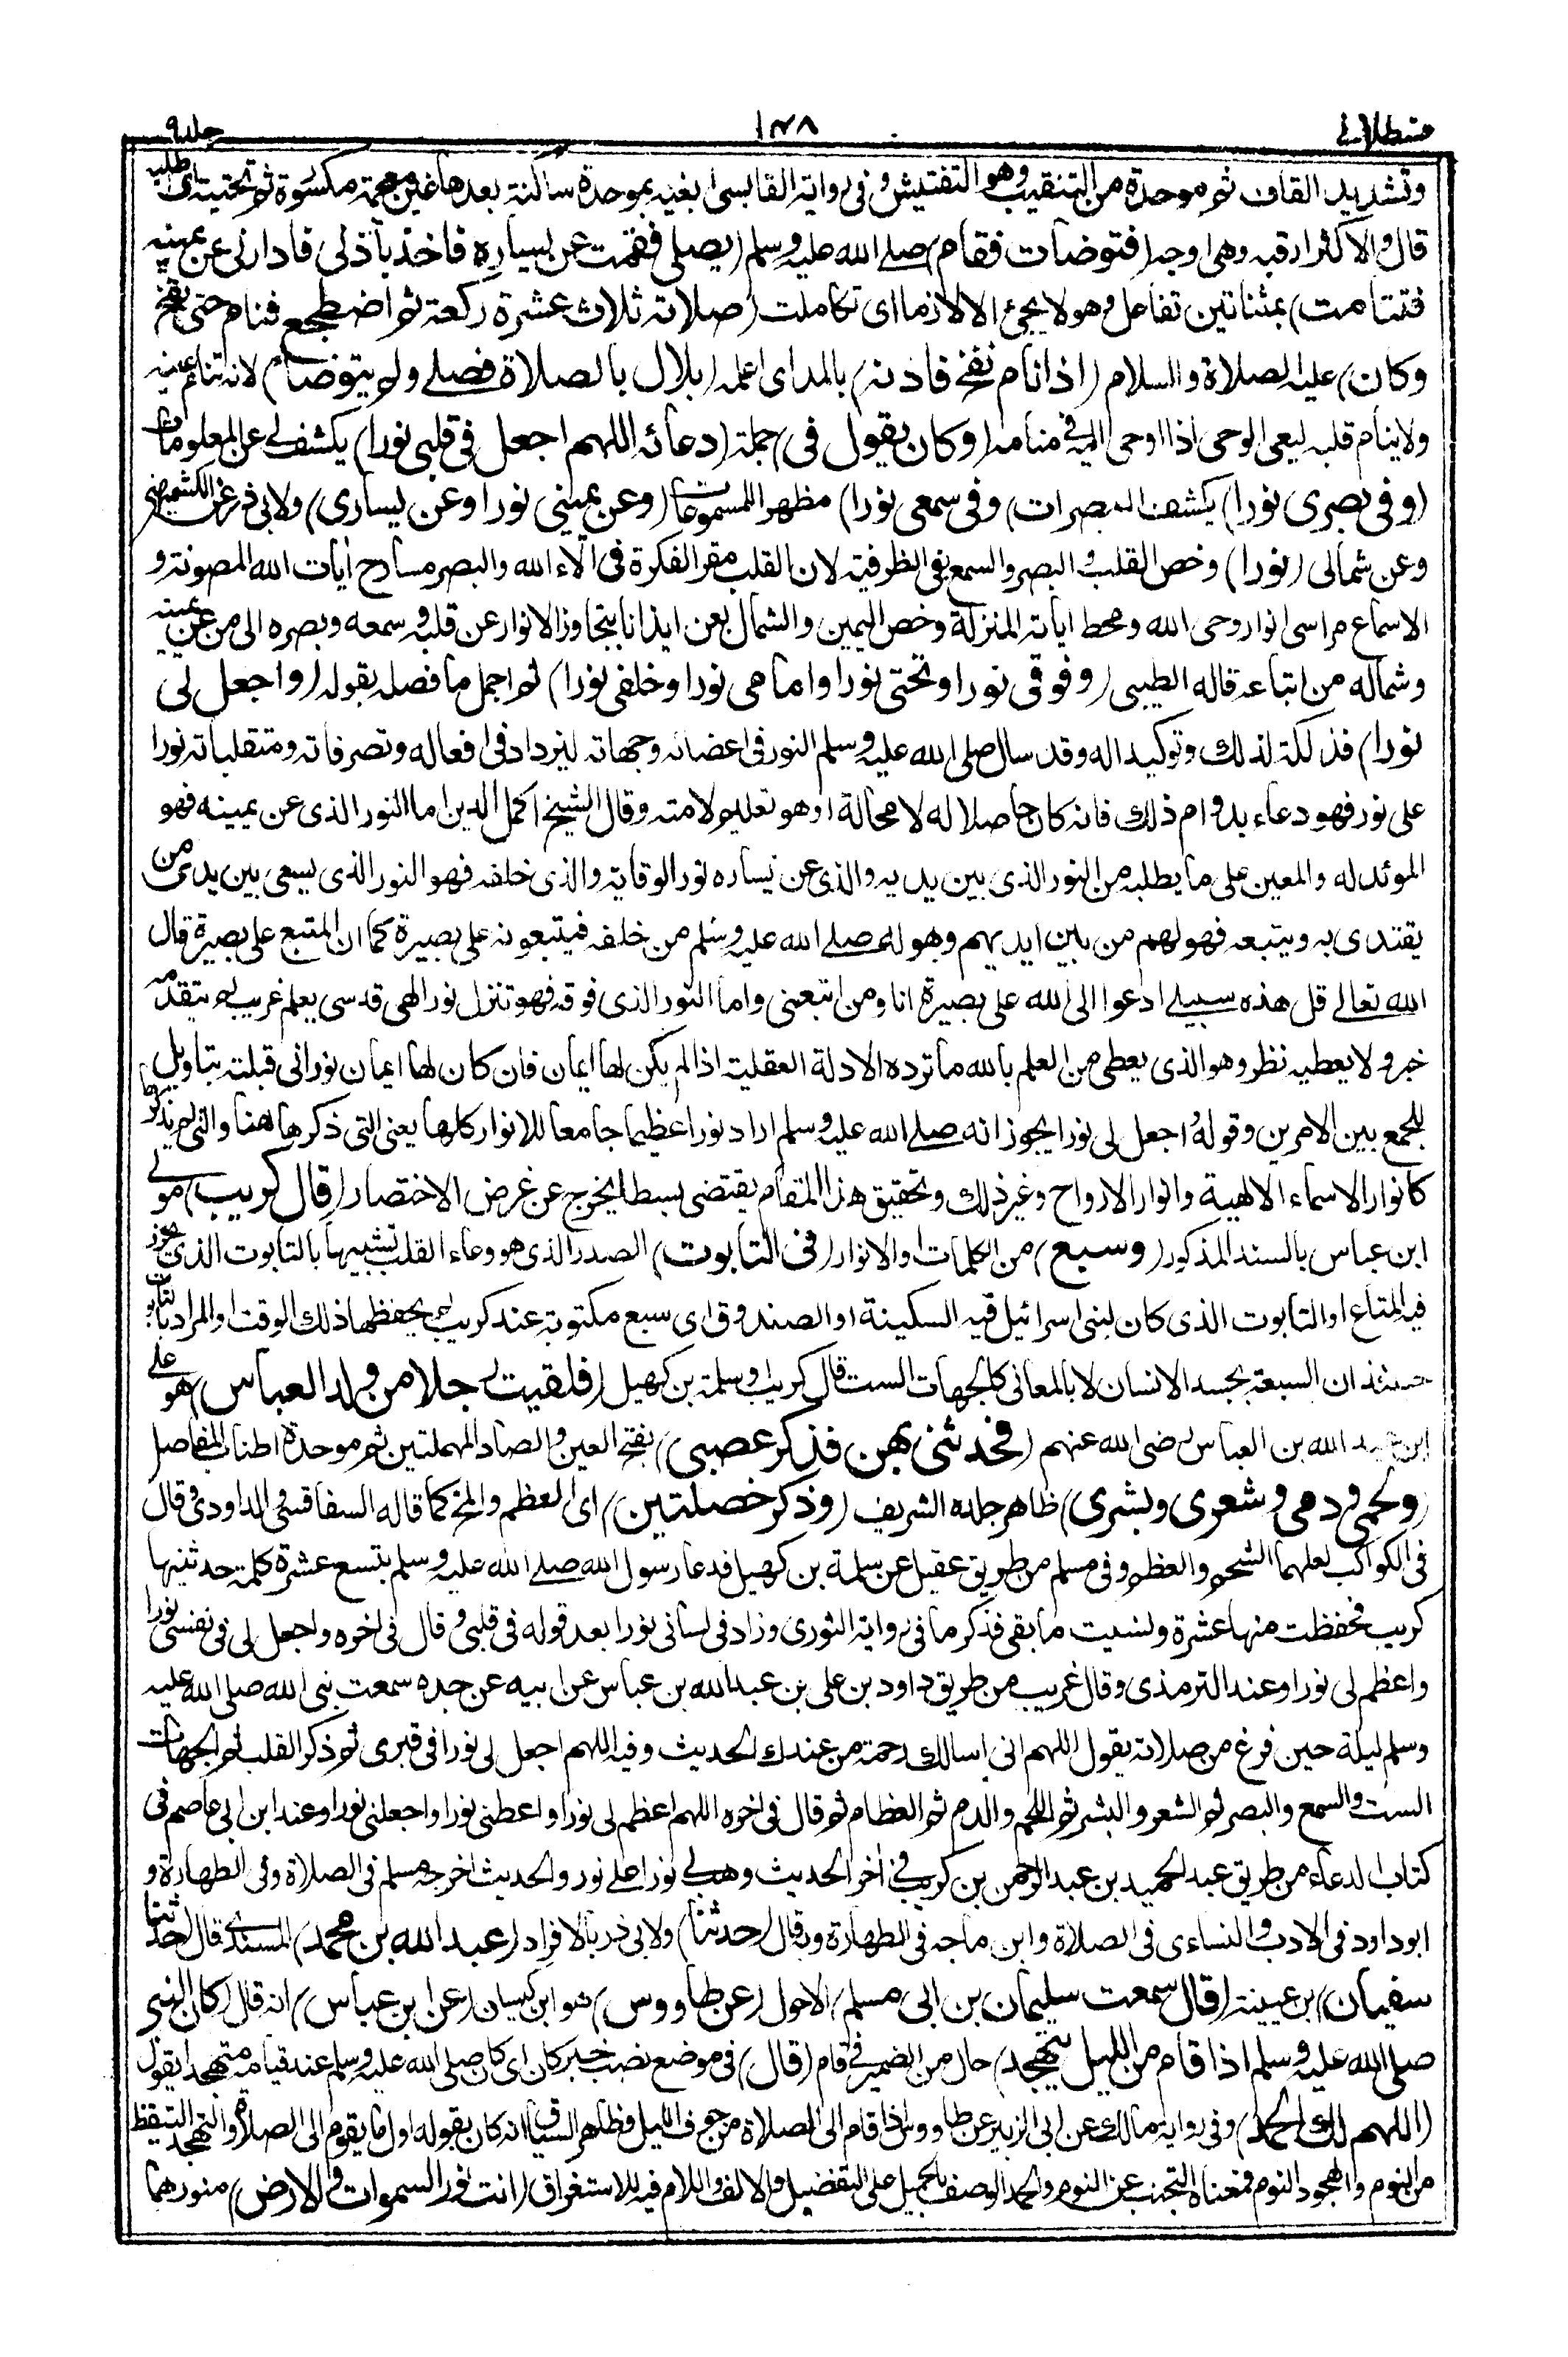 قسطلانی ١٧٨ جلد ٩
وتشديد القاف ثم موحدة من التنقيب وهو التفتيش وفى رواية القابسى ابغيه بموحدة ساكنة بعدها غين معجمة مكسوة ثم تحتية اى اطلبه
قال والاكثر ارقبه وهى اوجه (فتوضات فقام) صلى الله عليه وسلم (يصلى فقمت عن يساره فاخذ باذنى فادارنى عن يمينه
فتتامت) بمثناتين تفاعل وهو لا يجئ الا لازما اى تكاملت (صلاته ثلاث عشرة ركعة ثم اضطجع فنام حتى نفخ
وكان) عليه الصلاة والسلام (اذا نام نفخ فاذنه) بالمد اى اعلمه (بلال بالصلاة فصلى ولم يتوضأ) لانه تنام عينه
ولا ينام قلبه ليعى الوحى اذا اوحى اليه فى منامه (وكان يقول فى) جملة (دعائه اللهم اجعل فى قلبى نورا) يكشف لى عن المعلومات
(وفى بصرى نورا) يكشف المبصرات (وفى سمعى نورا) مظهرا للمسموعات (وعن يمينى نورا وعن يسارى) ولابى ذر عن الكشميهنى
وعن شمالى (نورا) وخص القلب والبصر والسمع بفى الظرفية لان القلب مقر الفكرة فى الاء الله والبصر مسارح ايات الله المصونة و
الاسماع مراسى انوار وحى الله ومحط اياته المنزلة وخص اليمين والشمال بعن ايذانا بتجاوز الانوار عن قلبه وسمعه وبصره الى من عن يمينه
وشماله من اتباعه قاله الطيبى (وفوقى نورا وتحتى نورا وامامى نورا وخلفى نورا) ثم اجمل ما فصله بقوله (واجعل لى
نورا) فذلكة لذلك وتوكيدا له وقد سال صلى الله عليه وسلم النور فى اعضائه وجهاته ليزداد فى افعاله وتصرفاته ومتقلباته نورا
على نور فهو دعاء بدوام ذلك فانه كان حاصلا له لا محالة او هو تعليم لامته وقال الشيخ اكمل الدين اما النور الذى عن يمينه فهو
الموئد له والمعين على ما يطلبه من النور الذى بين يديه والذى عن يساره نور الوقاية والذى خلفه فهو النور الذى يسعى بين يدى من
يقتدى به ويتبعه فهو لهم من بين ايديهم وهو له صلى الله عليه وسلم من خلفه فيتبعونه على بصيرة كما ان المتبع على بصيرة قال
الله تعالى قل هذه سبيلى ادعوا الى الله على بصيرة انا ومن اتبعنى واما النور الذى فوقه فهو تنزل نور الهى قدسى بعلم غريب لم يتقدمه
خبر ولا يعطيه نظر وهو الذى يعطى من العلم بالله ما ترده الادلة العقلية اذا لم يكن لها ايمان فان كان لها ايمان نورانى قبلته بتاويل
للجمع بين الامرين وقوله اجعل لى نورا يجوز انه صلى الله عليه وسلم اراد نورا عظيما جامعا للانوار كلها يعنى التى ذكرها هنا والتى لم يذكرها
كانوار الاسماء الالهية وانوار الارواح وغير ذلك وتحقيق هذا المقام يقتضى بسطا يخرج عن غرض الاختصار (قال كريب) مولى
ابن عباس بالسند المذكور (وسبع) من الكلمات او الانوار (فى التابوت) الصدر الذى هو وعاء القلب تشبيها بالتابوت الذى يحرز
فيه المتاع او التابوت الذى كان لبنى اسرائيل فيه السكينة او الصندوق اى سبع مكتوبة عند كريب لم يحفظها ذلك الوقت او المراد بالتابوت
حينئذ ان السبعة بجسد الانسان لا بالمعانى كالجهات الست قال كريب او سلمة بن كهيل (فلقيت رجلا من ولد العباس) هو على
ابن عبد الله بن العباس رضى الله عنهم (فحدثنى بهن فذكر عصبى) بفتح العين والصاد المهملتين ثم موحدة اطناب المفاصل
(ولحمى ودمى وشعرى وبشرى) ظاهر جلده الشريف (وذكر خصلتين) اى العظم والمخ كما قاله السفاقسى والداودى وقال
فى الكواكب لعلهما الشحم والعظم وفى مسلم من طريق عقيل عن سلمة بن كهيل فدعا رسول الله صلى الله عليه وسلم بتسع عشرة كلمة حدثنيها
كريب فحفظت منها عشرة ونسيت ما بقى فذكر ما فى رواية الثورى وزاد فى لسانى نورا بعد قوله فى قلبى وقال فى اخره واجعل لى فى نفسى نورا
واعظم لى نورا وعند الترمذى وقال غريب من طريق داود بن على بن عبد الله بن عباس عن ابيه عن جده سمعت نبى الله صلى الله عليه
وسلم ليلة حين فرغ من صلاته يقول اللهم انى اسالك رحمة من عندك الحديث وفيه اللهم اجعل لى نورا فى قبرى ثم ذكر القلب ثم الجهات
الست والسمع والبصر ثم الشعر والبشر ثم اللحم والدم ثم العظام ثم قال فى اخره اللهم اعظم لى نورا واعطنى نورا واجعلنى نورا وعند ابن ابى عاصم فى
كتاب الدعاء من طريق عبد الحميد بن عبد الرحمن بن كريب فى اخر الحديث وهب لى نورا على نور والحديث اخرجه مسلم فى الصلاة وفى الطهارة و
ابو داود فى الادب والنساءى فى الصلاة وابن ماجه فى الطهارة وبه قال (حدثنا) ولابى ذر بالافراد (عبد الله بن محمد) المسندى قال (حدثنا
سفيان) بن عيينة (قال سمعت سليمان بن ابى مسلم) الاحول (عن طاووس) هو ابن كيسان (عن ابن عباس) انه قال (كان النبى
صلى الله عليه وسلم اذا قام من الليل يتهجد) حال من الضمير فى قام (قال) فى موضع نصب خبر كان اى كان صلى الله عليه وسلم عند قيامه متهجدا يقول
(اللهم لك الحمد) وفى رواية مالك عن ابى الزبير عن طاووس اذا قام الى الصلاة من جوف الليل وظاهر السياق انه كان يقوله اول ما يقوم الى الصلاة والتهجد التيقظ
من النوم والهجود النوم فمعناه التجنب عن النوم والحمد الوصف بالجميل على التفضيل والالف واللام فيه للاستغراق (انت نور السموات والارض) منورهما